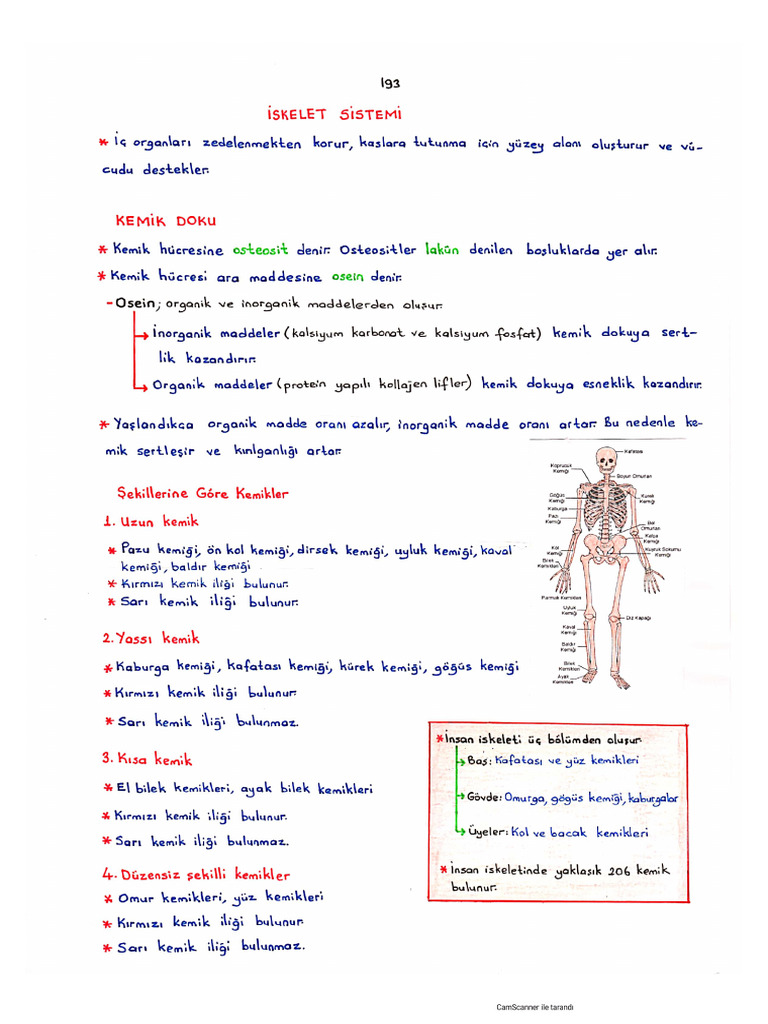 193
İSKELET SİSTEMİ
* İç organları zedelenmekten korur, kaslara tutunma için yüzey alanı oluşturur ve vü-
cudu destekler.
KEMİK DOKU
* Kemik hücresine osteosit denir. Osteositler lakün denilen boşluklarda yer alır.
* Kemik hücresi ara maddesine osein denir.
- Osein; organik ve inorganik maddelerden oluşur.
İnorganik maddeler (kalsiyum karbonat ve kalsiyum fosfat) kemik dokuya sert-
lik kazandırır.
Organik maddeler (protein yapılı kollajen lifler) kemik dokuya esneklik kazandırır.
* Yaşlandıkça organik madde oranı azalır, inorganik madde oranı artar. Bu nedenle ke-
mik sertleşir ve kırılganlığı artar.
Şekillerine Göre Kemikler
1. Uzun kemik
* Pazu kemiği, ön kol kemiği, dirsek kemiği, uyluk kemiği, kaval
kemiği, baldır kemiği
* Kırmızı kemik iliği bulunur.
* Sarı kemik iliği bulunur.
2. Yassı kemik
* Kaburga kemiği, kafatası kemiği, kürek kemiği, göğüs kemiği
* Kırmızı kemik iliği bulunur.
* Sarı kemik iliği bulunmaz.
3. Kısa kemik
* El bilek kemikleri, ayak bilek kemikleri
* Kırmızı kemik iliği bulunur.
* Sarı kemik iliği bulunmaz.
4. Düzensiz şekilli kemikler
* Omur kemikleri, yüz kemikleri
* Kırmızı kemik iliği bulunur.
* Sarı kemik iliği bulunmaz.
Kafatası
Köprücük
Kemiği
Boyun Omurları
Göğüs
Kemiği
Kürek
Kemiği
Kaburga
Pazı
Kemiği
Bel
Omurları
Kalça
Kemiği
Kol
Kemiği
Kuyruk Sokumu
Kemiği
Bilek
Kemikleri
Parmak Kemikleri
Uyluk
Kemiği
Diz Kapağı
Kaval
Kemiği
Baldır
Kemiği
Bilek
Kemikleri
Ayak
Kemikleri
* İnsan iskeleti üç bölümden oluşur.
Baş: Kafatası ve yüz kemikleri
Gövde: Omurga, göğüs kemiği, kaburgalar
Üyeler: Kol ve bacak kemikleri
* İnsan iskeletinde yaklaşık 206 kemik
bulunur.
CamScanner ile tarandı